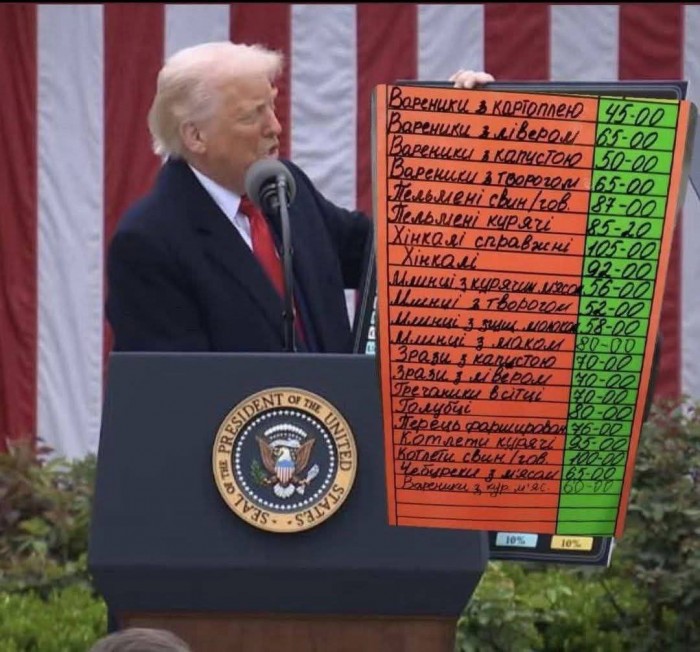 Вареники з картоплею 45-00
Вареники з лівером 65-00
Вареники з капустою 50-00
Вареники з творогом 65-00
Пельмені свин/гов. 87-00
Пельмені курячі 85-20
Хінкалі справжні 105-00
Хінкалі 92-00
Млинці з курячим м'ясом 56-00
Млинці з творогом 52-00
Млинці з згущ молоком 58-00
Млинці з маком 80-00
Зрази з капустою 70-00
Зрази з лівером 70-00
Гречаники в сітці 70-00
Голубці 80-00
Перець фарширован 76-00
Котлети курячі 95-00
Котлети свин/гов. 100-00
Чебуреки з м'ясом 65-00
Вареники з кур. м'яс. 60-00
10% 10%
SEAL OF THE PRESIDENT OF THE UNITED STATES